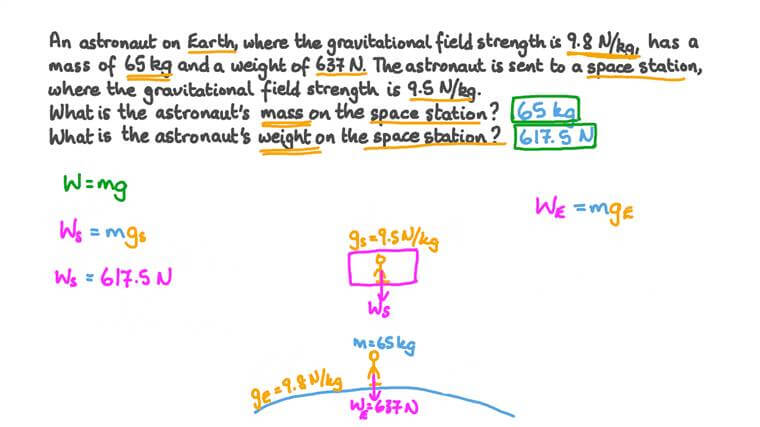 An astronaut on Earth, where the gravitational field strength is 9.8 N/kg, has a
mass of 65 kg and a weight of 637 N. The astronaut is sent to a space station,
where the gravitational field strength is 9.5 N/kg.
What is the astronaut's mass on the space station? 65 kg
What is the astronaut's weight on the space station? 617.5 N
W = mg
W_E = mg_E
W_s = mg_s
g_s = 9.5 N/kg
W_s = 617.5 N
W_s
m = 65 kg
g_e = 9.8 N/kg
W_E = 637 N